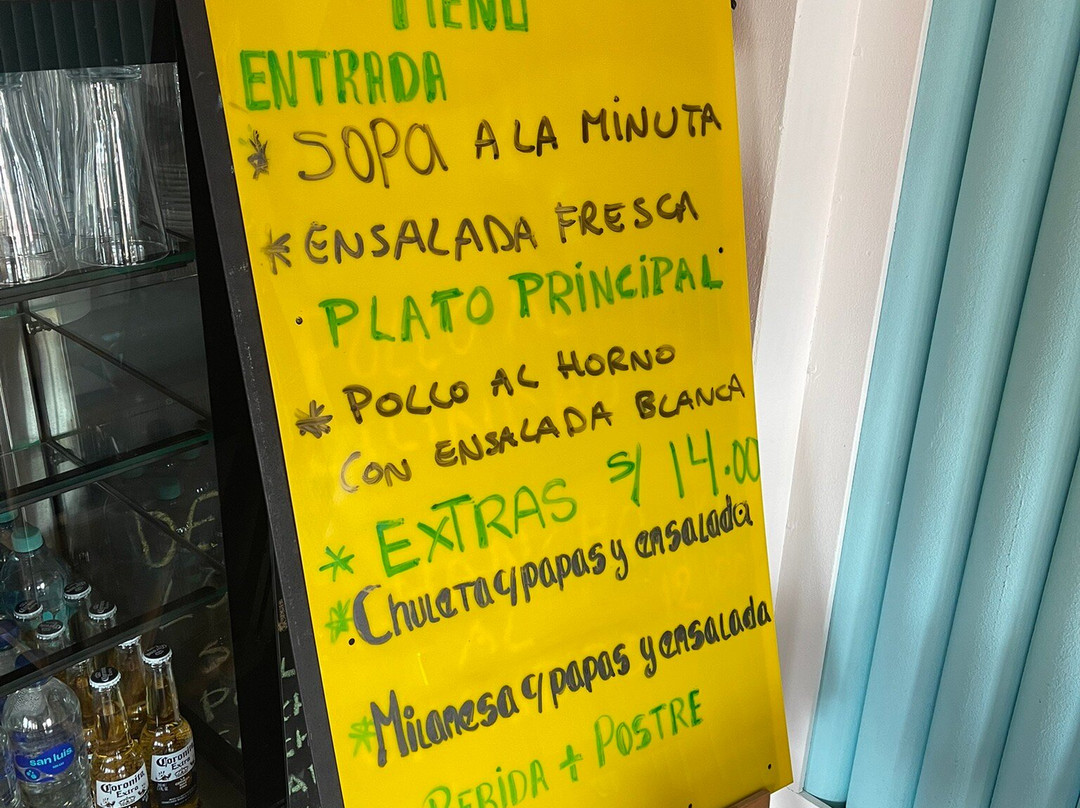 MENÚ
ENTRADA
* SOPA A LA MINUTA
* ENSALADA FRESCA
PLATO PRINCIPAL
* POLLO AL HORNO
CON ENSALADA BLANCA
* EXTRAS S/ 14.00
* Chuleta c/papas y ensalada
* Milanesa c/papas y ensalada
BEBIDA + POSTRE
san luis
Coronita
Extra
Coronita
Extra